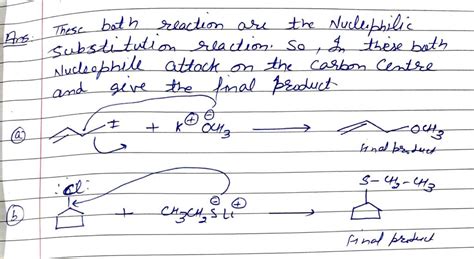 Ans. These both reaction are the Nucleophilic
substitution reaction. So, In these both
Nucleophile attack on the carbon centre
and give the final product
(a) I + K⊕ ⊖OCH3 → OCH3
final product
(b) :Cl: + CH3CH2S⊖ Li⊕ → S-CH2-CH3
final product